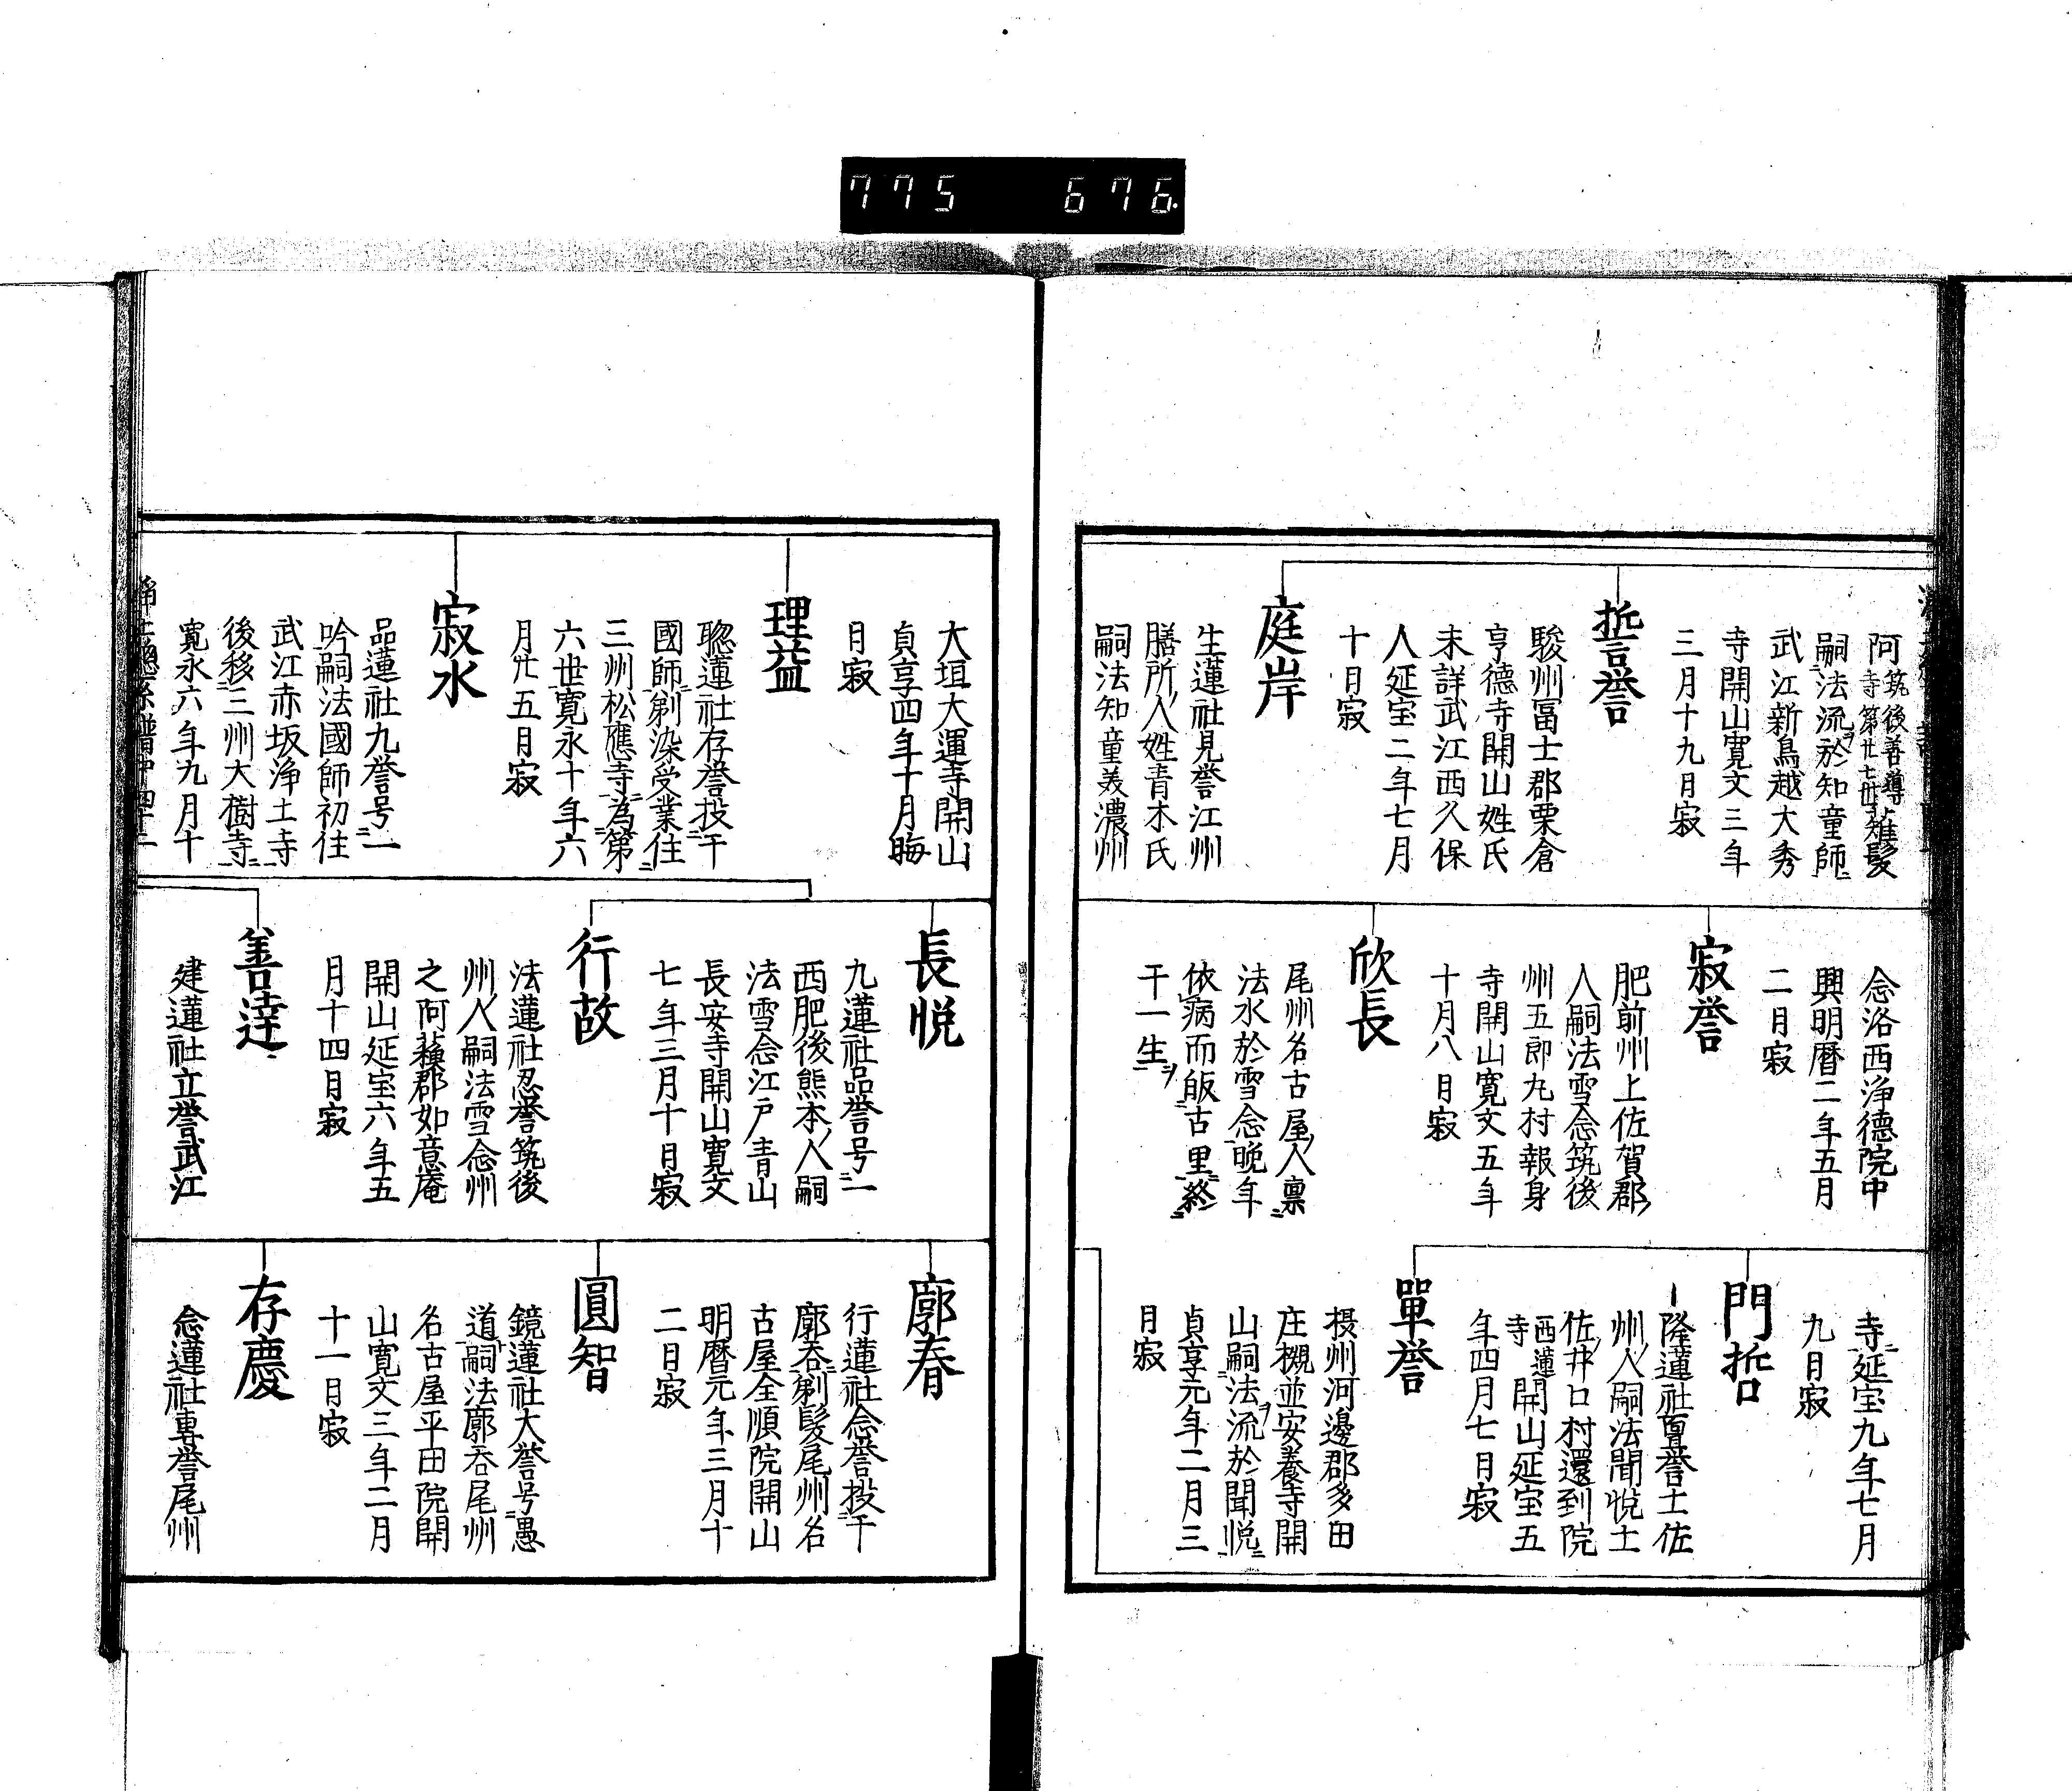 775 676
阿筑後善導寺第廿七世薙髪
嗝法流於知童師
武江新鳥越大秀
寺開山寛文三年
三月十九日寂
哲誉
駿州冨士郡栗倉
亨德寺開山姓氏
未詳武江西久保
人延宝二年七月
十日寂
庭岸
生蓮社見誉江州
膳所人姓青木氏
嗣法知童美濃州
念洛西浄德院中
興明暦二年五月
二日寂
寂誉
肥前州上佐賀郡
人嗣法雪念筑後
州五郎丸村報身
寺開山寛文五年
十月八日寂
欣長
尾州名古屋人禀
法水於雪念晩年
依病而皈古里終
干一生
寺延宝九年七月
九日寂
門哲
隆蓮社負誉土佐
州人嗣法聞悦土
佐井口村還到院
西蓮寺開山延宝五
年四月七日寂
單誉
摂州河邊郡多田
庄槻並安養寺開
山嗣法流於聞悦
貞享元年二月三
日寂
大垣大運寺開山
貞享四年十月晦
日寂
理益
聡蓮社存誉投干
國師剃染受業住
三州松應寺為第
六世寛永十年六
月廿五日寂
寂水
品蓮社九誉号一
吟嗣法國師初住
武江赤坂浄土寺
後移三州大樹寺
寛永六年九月十
長悦
九蓮社品誉号一
西肥後熊本人嗣
法雪念江戸青山
長安寺開山寛文
七年三月十日寂
行故
法蓮社忍誉筑後
州人嗣法雪念州
之阿䕃郡如意庵
開山延宝六年五
月十四日寂
善達
建蓮社立誉武江
廓春
行蓮社念誉投干
廓呑剃髪尾州名
古屋全順院開山
明暦元年三月十
二日寂
圓智
鏡蓮社大誉号愚
道嗣法廓呑尾州
名古屋平田院開
山寛文三年二月
十一日寂
存慶
念蓮社專誉尾州